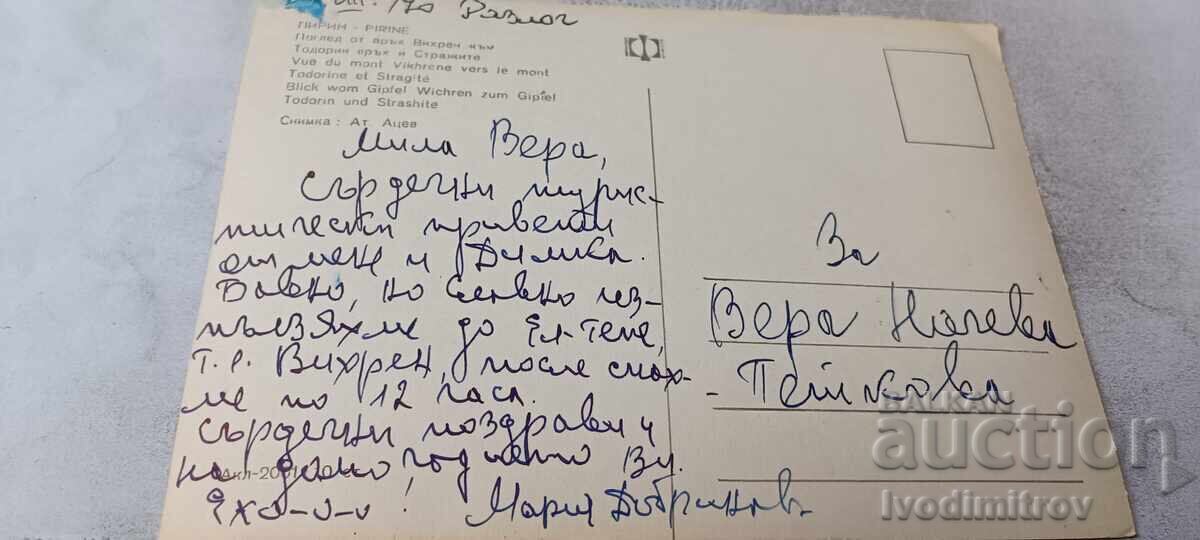 VIII. 170 Разлог
ПИРИН - PIRINE
Поглед от връх Вихрен към
Тодорин връх и Стражите
Vue du mont Vikhrene vers le mont
Todorine et Stragité
Blick wom Gipfel Wichren zum Gipfel
Todorin und Strashite
Снимка: Ат. Ацев
Мила Вера,
Сърдечни турис-
тически привети
от мен и Димка.
Бавно, но славно из-
пълзяхме до Ел-Тепе,
т.е. Вихрен, после спах-
ме по 12 часа.
Сърдечни поздрави и
на цялото Ву.
Ехо-о-о! Мария Добринова
За
Вера Начева
- Петкова
BALKAN
auction
Ivodimitrov